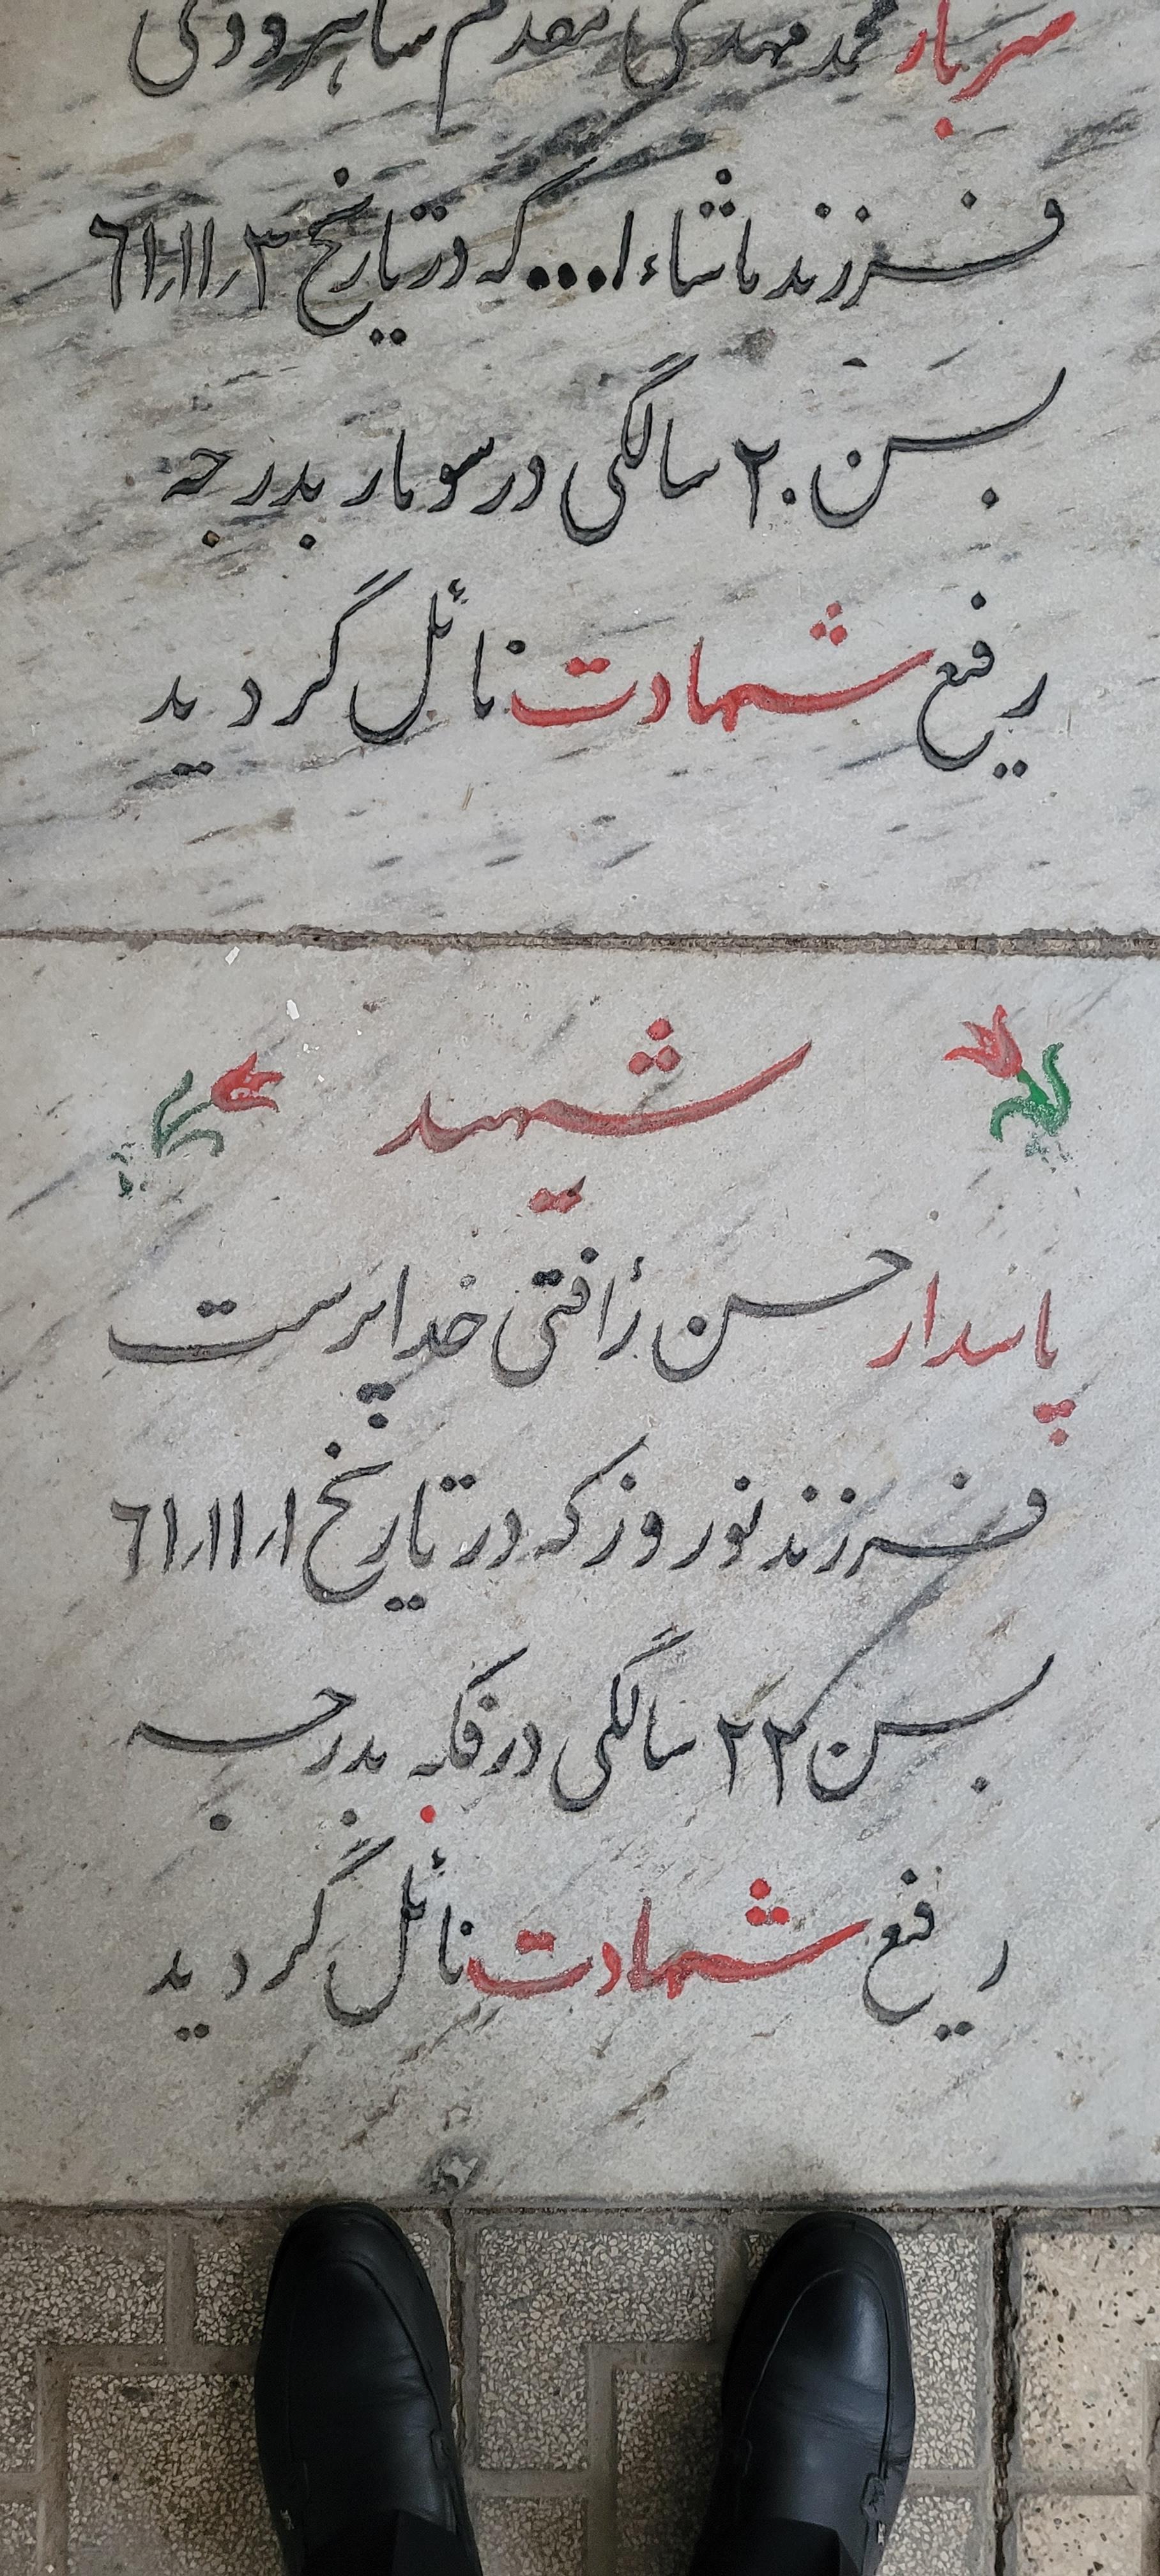 سرباز محمد مهدی مقدم شاهرودی
فرزند ماشاءا... که در تاریخ ۶۱/۱۱/۳
بسن ۲۰ سالگی در سومار بدرجه
رفیع شهادت نائل گردید
شهید
پاسدار حسن رأفتی خداپرست
فرزند نوروز که در تاریخ ۶۱/۱۱/۱
بسن ۲۲ سالگی در فکه بدرجه
رفیع شهادت نائل گردید